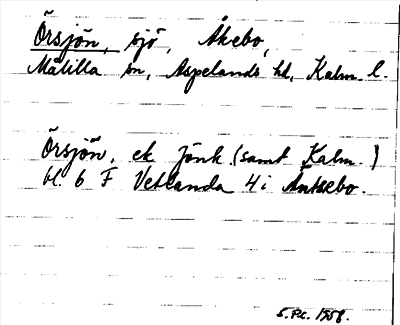 Örsjön, sjö, Åkebo,
Målilla sn, Aspelands hd, Kalm. l.
Örsjön, ek Jönk. (samt Kalm.)
bl. 6 F Vetlanda 4 i Äntsebo.
S.Pc. 1958.